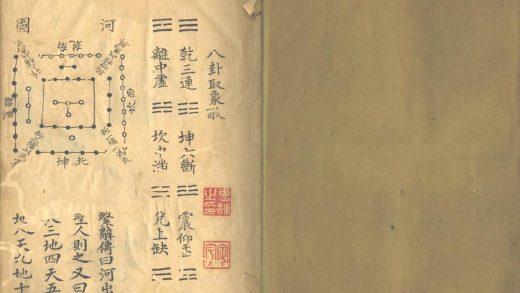 八卦取象歌
乾三連 坤六斷 震仰盂
離中虛 坎中滿 兌上缺
惠棟之印
河圖
坤北
繫辭傳曰河出
聖人則之又曰
三地四天五
地八天九地十